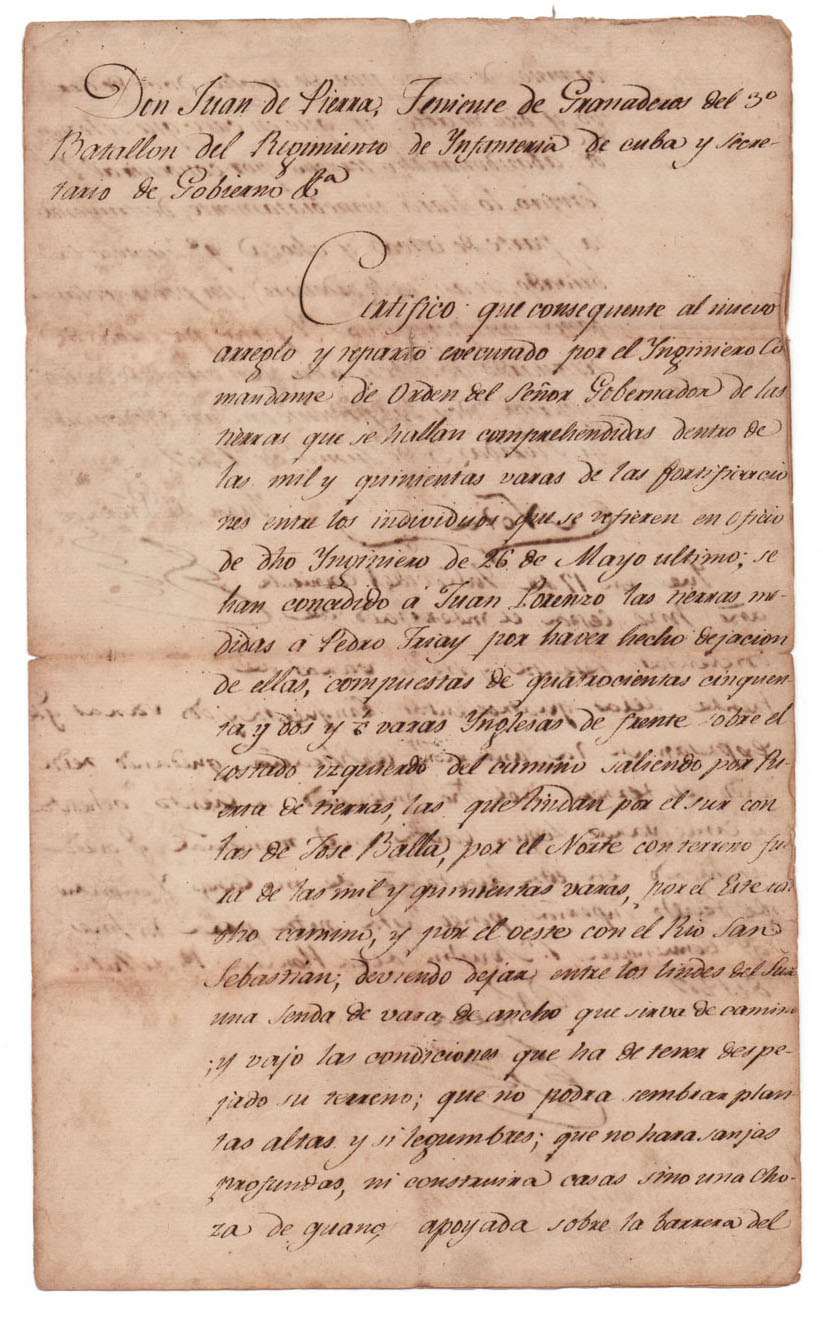 Don Juan de Pierra, Teniente de Granaderos del 3º
Batallon del Regimiento de Infanteria de cuba y Secre-
tario de Gobierno &a
Certifico que consequente al nuevo
arreglo y reparto executado por el Yngeniero Co
mandante de Orden del Señor Gobernador de las
tierras que se hallan comprehendidas dentro de
las mil y quinientas varas de las fortificacio
nes entre los individuos que se refieren en oficio
de dho Yngeniero de 26 de Mayo ultimo; se
han concedido á Juan Lorenzo las tierras me-
didas a Pedro Triay por haver hecho dejacion
de ellas, compuestas de quatrocientas cinquen
ta y dos y varas Ynglesas de frente sobre el
costado izquierdo del camino saliendo por Pu-
erta de tierras, las que lindan por el sur con
las de Jose Balla, por el Norte con terreno fue
ra de las mil y quinientas varas, por el Este con
dho camino, y por el oeste con el Rio San
Sebastián; deviendo dejar entre los lindes del Sur
una senda de vara de ancho que sirva de camino
; y vajo las condiciones que ha de tener despe-
jado su terreno; que no podra sembrar plan-
tas altas y si legumbres; que no hara sanjas
profundas, ni construira casas sino una cho-
za de guano apoyada sobre la barrera del